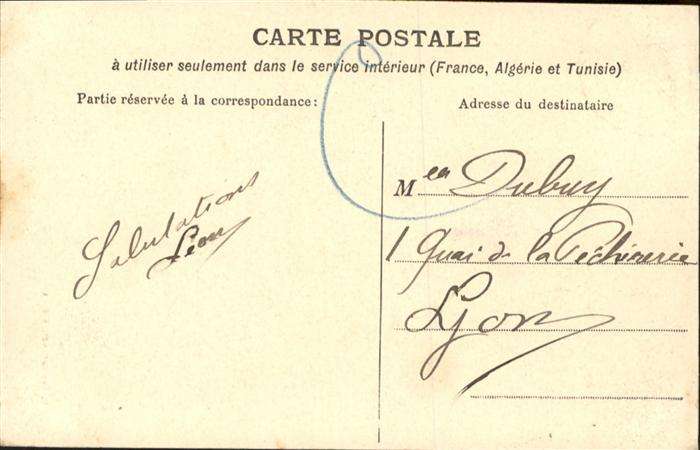 CARTE POSTALE
à utiliser seulement dans le service intérieur (France, Algérie et Tunisie)
Partie réservée à la correspondance:
Adresse du destinataire
Salutations
Léon
Mlles Dubuy
1 Quai de la Pêcherie
Lyon